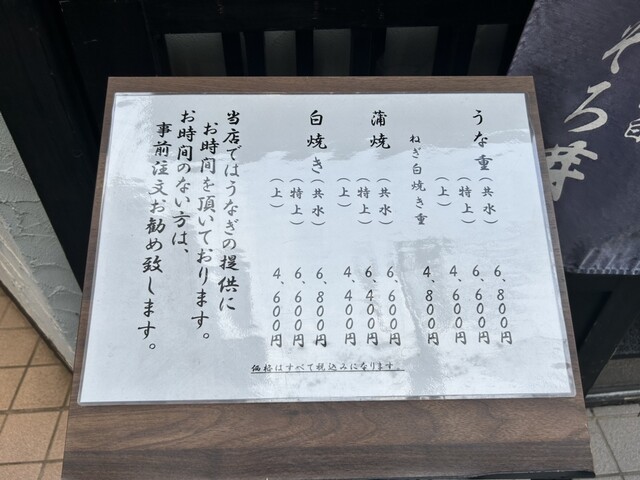 うな重（共水） 6、800円
（特上） 6、600円
（上） 4、600円
ねぎ白焼き重 4、800円
蒲焼（共水） 6、600円
（特上） 6、400円
（上） 4、400円
白焼き（共水） 6、800円
（特上） 6、600円
（上） 4、600円
当店ではうなぎの提供に
お時間を頂いております。
お時間のない方は、
事前注文お勧め致します。
価格はすべて税込みになります。